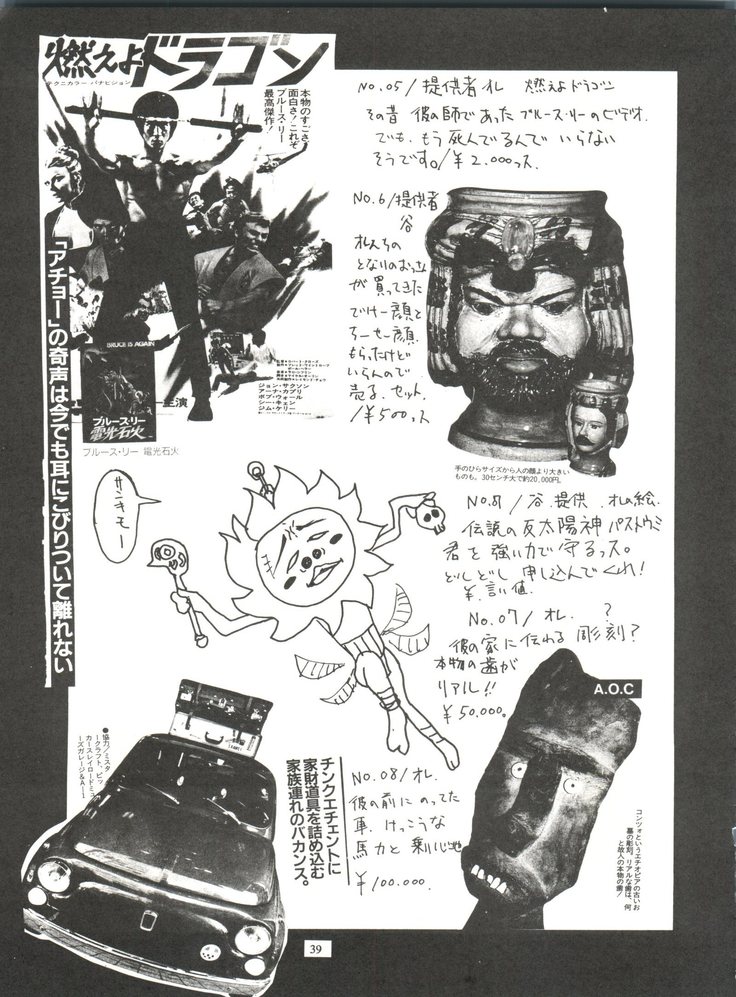 燃えよドラゴン
テクニカラー・パナビジョン
本物のすごさ
面白さ!これぞ
ブルース・リー
最高傑作!
BRUCE IS AGAIN
ブルース・リー
電光石火
主演
ジョン・サクソン
アーナ・カプリ
ボブ・ウォール
シー・キエン
ジム・ケリー
ブルース・リー 電光石火
「アチョー」の奇声は今でも耳にこびりついて離れない
No.05/提供者オレ 燃えよドラゴン
その昔 彼の師であったブルース・リーのビデオ.
でも、もう死んでるんで いらない
そうです。/¥2.000っス.
No.6/提供者
谷
オレんちの
となりのおっさん
が買ってきた
でけー顔と
ちーせー顔.
もらったけど
いらんので
売る. セット.
/¥500っス
手のひらサイズから人の顔より大きい
ものも。30センチ大で約20,000円。
サンキモー
No.8/谷 提供 オレの絵.
伝説の反太陽神 パストウミ
君を 強い力で 守るっス。
どしどし 申し込んでくれ!
¥.言い値.
No.07/オレ. ?
彼の家に伝わる 彫刻?
本物の歯が
リアル!!
¥50.000。
A.O.C
コンツォというエチオピアの古いお
墓の彫刻。リアルな歯は、何
と故人の本物の歯!
●協力/ミスタ
ークラフト、ビッ
カースレイロードミュ
ーズガレージ&A-11
チンクエチェントに
家財道具を詰め込む
家族連れのバカンス。
No.08/オレ.
彼の前にのってた
車. けっこうな
馬力と 乗り心地
¥100.000.
39